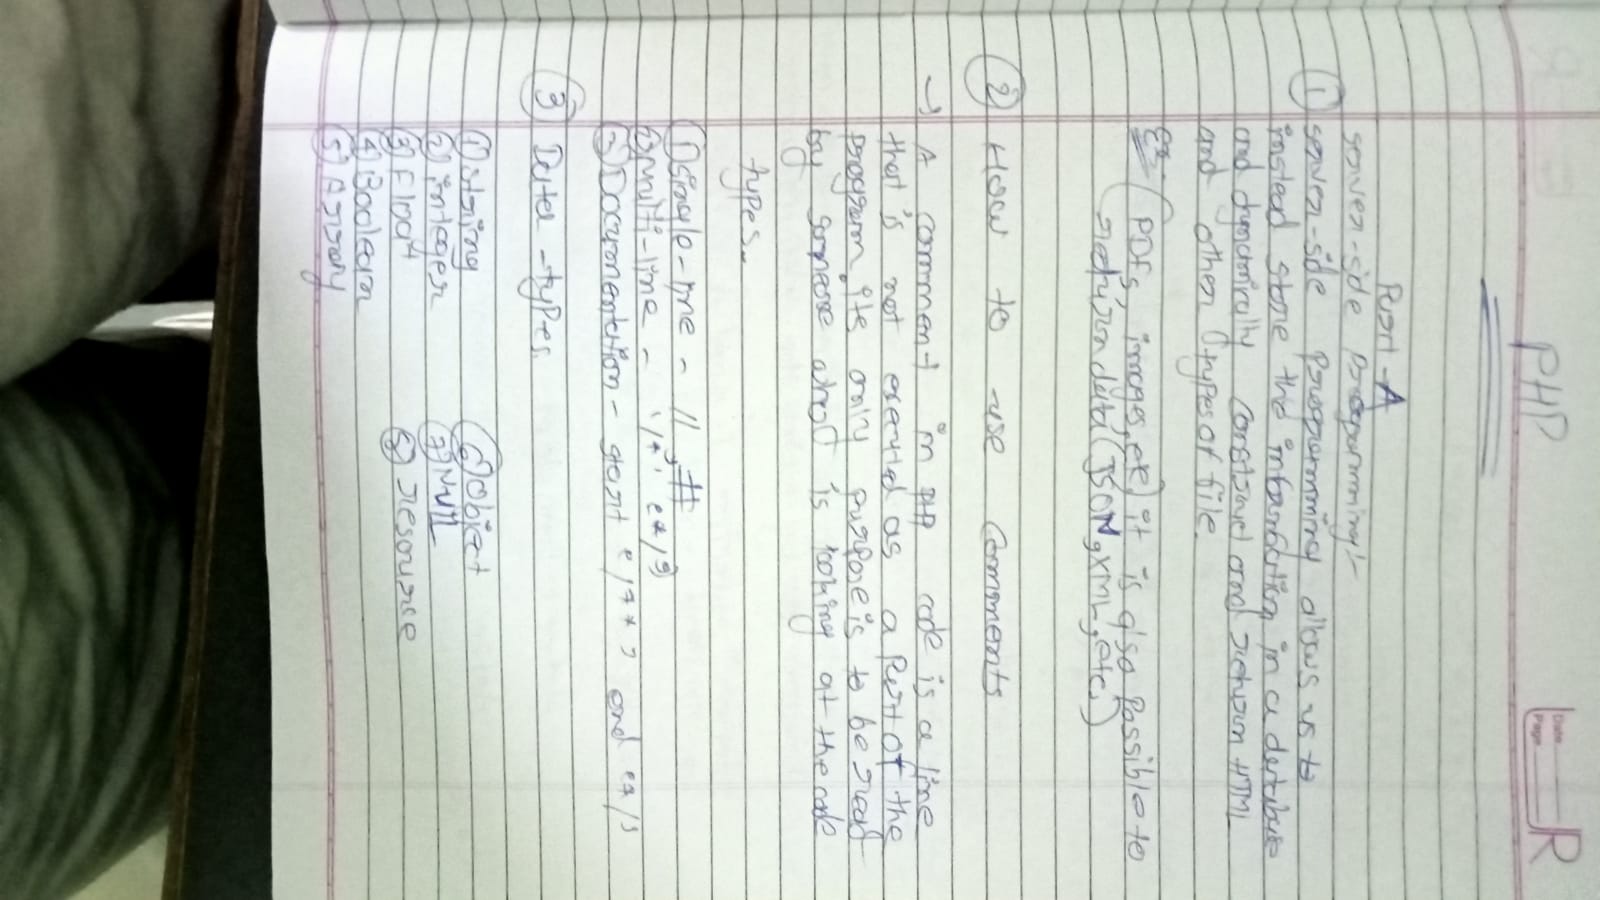 PHP
Date
Page
R
Part-A
server-side programming:-
① server-side programming allows us to
instead store the information in a database
and dynamically construct and return HTML
and other types of file.
Ex. (PDFs, images, etc) it is also Passible to
return data (JSON, XML, etc.)
② How to use Comments
→ A comment in PHP code is a line
that is not as a Part of the
program, its only purpose is to be read
by someone is looking at the code
types..
① - // , #
② multi-line - '/*' '*/'
③ Documentation - start '/**' and '*/'
③ Data-types
① String
② integer
③ Float
④ Boolean
⑤ Array
⑥ Object
⑦ Null
resourse